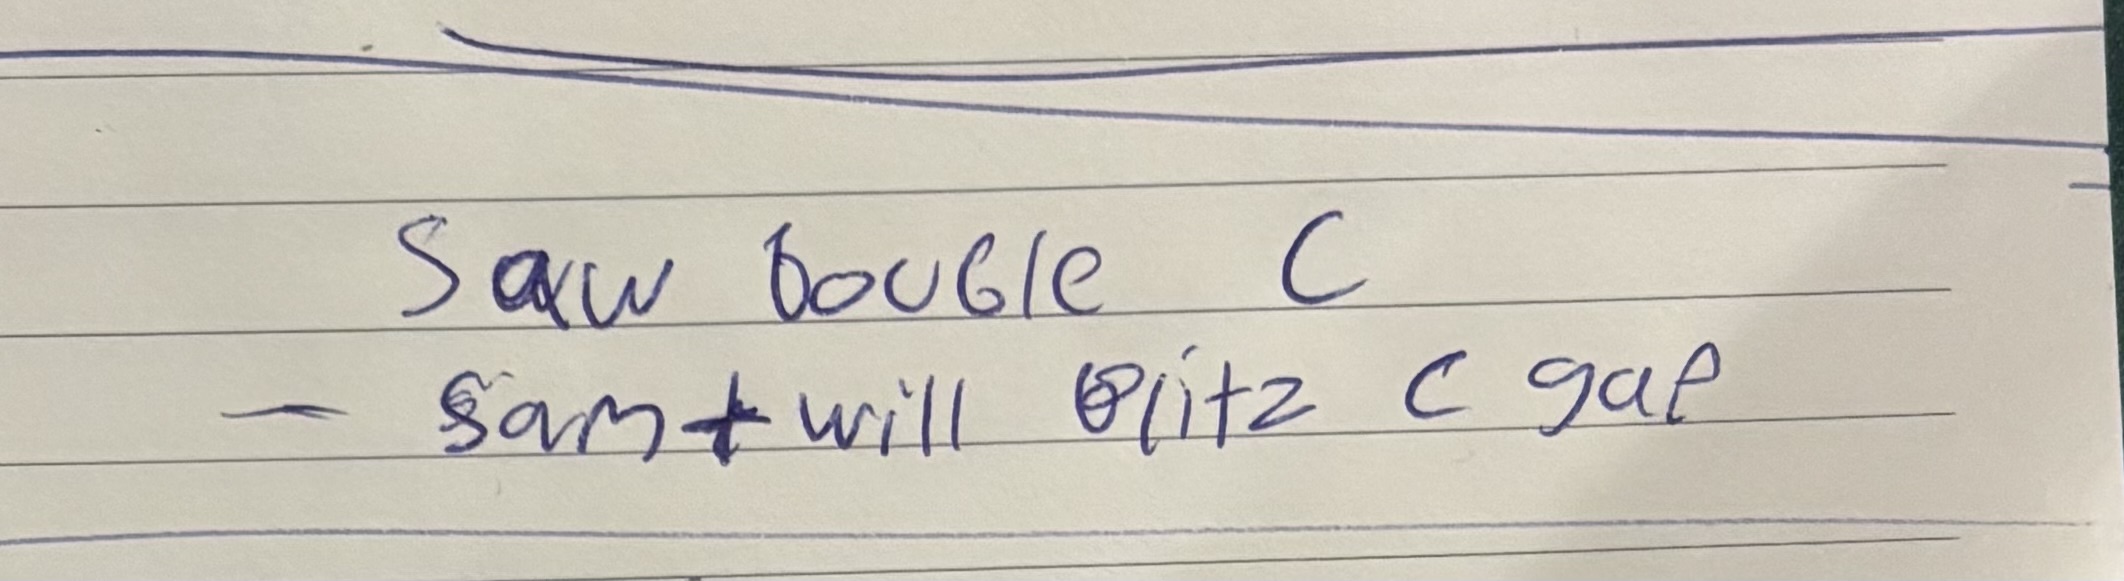 Saw Double C
- Sam + will Blitz C gap